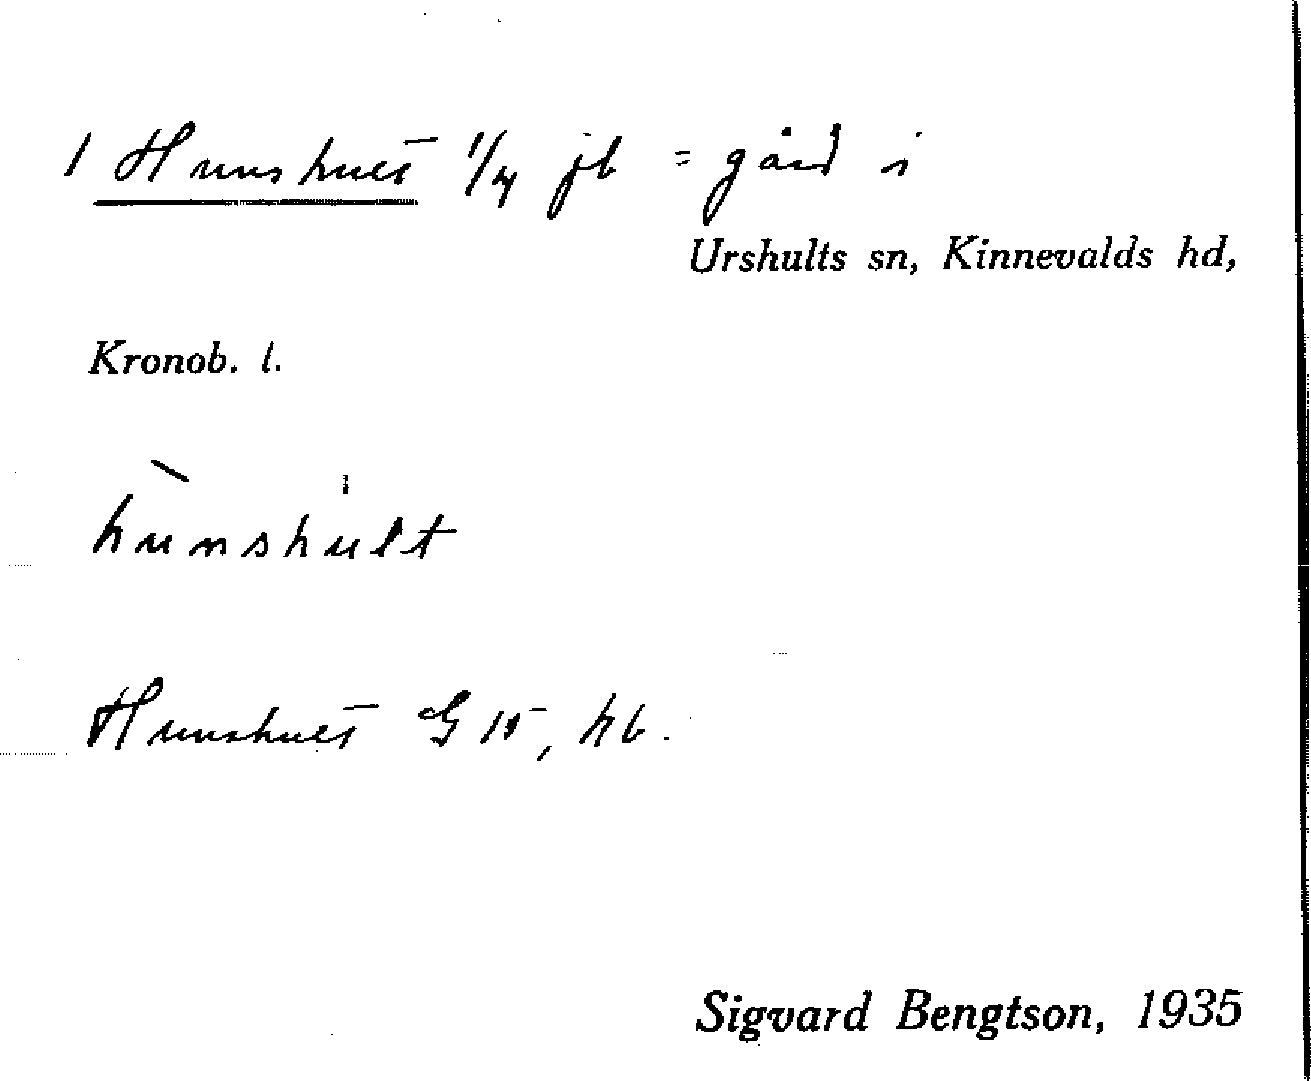 1 Hunshult 1/4 jb = gård i
Urshults sn, Kinnevalds hd,
Kronob. l.
hùnshu̍lt
Hunshult G 15, hb.
Sigvard Bengtson, 1935